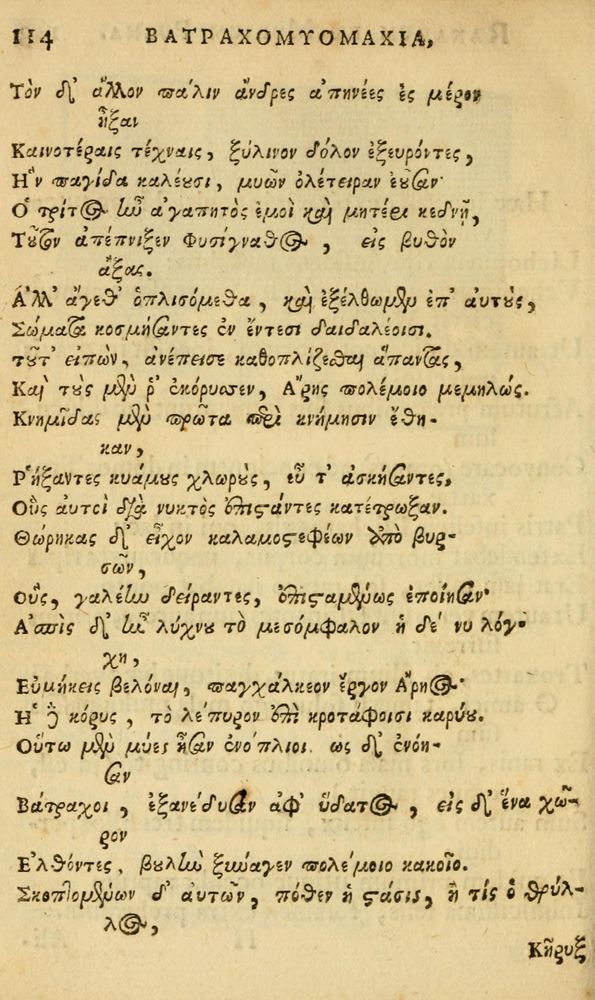 114 ΒΑΤΡΑΧΟΜΥΟΜΑΧΙΑ,
Τὸν δ' ἄλλον πάλιν ἄνδρες ἀπηνέες ἐς μέρον
ἦξαν
Καινοτέραις τέχναις, ξύλινον δόλον ἐξευρόντες,
Ἣν παγίδα καλέουσι, μυῶν ὀλέτειραν ἐοῦσαν·
Ὁ τρίτος ἦν ἀγαπητὸς ἐμοὶ καὶ μητέρι κεδνῇ,
Τοῦτον ἀπέπνιξεν Φυσίγναθος, εἰς βυθὸν
ἄξας.
Ἀλλ' ἄγεθ' ὁπλισόμεθα, καὶ ἐξέλθωμεν ἐπ' αυτοὺς,
Σώματα κοσμήσαντες ἐν ἔντεσι δαιδαλέοισι.
τοῦτ' εἰπὼν, ἀνέπεισε καθοπλίζεσθαι ἅπαντας,
Καὶ τοὺς μὲν ῥ' ἐκόρυσσεν, Ἄρης πολέμοιο μεμηλώς.
Κνημῖδας μὲν πρῶτα περὶ κνήμησιν ἔθη-
καν,
Ῥήξαντες κυάμους χλωροὺς, εὖ τ' ἀσκήσαντες,
Οὓς αυτοὶ διὰ νυκτὸς ἐπιστάντες κατέτρωξαν.
Θώρηκας δ' εἶχον καλαμοστεφέων ἀπὸ βυρ-
σῶν,
Οὓς, γαλέην δείραντες, ἐπισταμένως ἐποίησαν·
Ἀσπὶς δ' ἦν λύχνου τὸ μεσόμφαλον ἡ δέ νυ λόγ-
χη,
Εὐμήκεις βελόναι, παγχάλκεον ἔργον Ἄρηος·
Ἡ δὲ κόρυς, τὸ λέπυρον ἐπὶ κροτάφοισι καρύου.
Οὕτω μὲν μύες ἦσαν ἐνοπλιοι. ως δ' ἐνόη-
σαν
Βάτραχοι, ἐξανέδυσαν ἀφ' ὕδατος, εἰς δ' ἕνα χῶ-
ρον
Ἐλθόντες, βουλὴν ξύναγεν πολέμοιο κακοῖο.
Σκεπτομένων δ' αυτῶν, πόθεν ἡ στάσις, ἢ τίς ὁ θρύλ-
λος,
Κῆρυξ